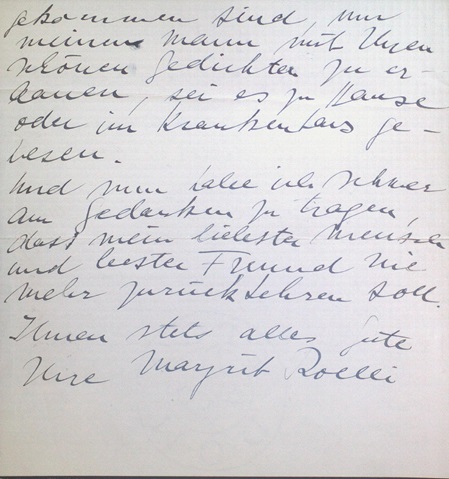 gekommen sind, um
meinen Mann mit Ihren
schönen Gedichten zu er-
bauen, sei es zu Hause
oder im Krankenhaus ge-
wesen.
Und nun habe ich schwer
am Gedanken zu tragen,
dass mein liebster Mensch
und bester Freund nie
mehr zurückkehren soll.
Ihnen stets alles gute
Ihre Margrit Roelli